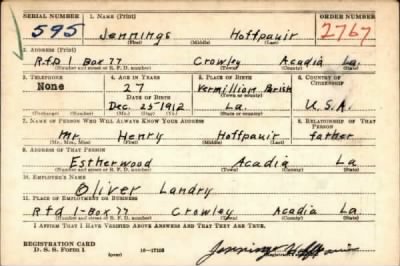 SERIAL NUMBER 1. NAME (Print) ORDER NUMBER
595 Jennings Hoffpauir 2767
(First) (Middle) (Last)
2. ADDRESS (Print)
R.f.d 1 Box 77 Crowley Acadia La.
(Number and street or R. F. D. number) (Town) (County) (State)
3. TELEPHONE 4. AGE IN YEARS 5. PLACE OF BIRTH 6. COUNTRY OF CITIZENSHIP
None 27 Vermillion Parish
(Town or county)
DATE OF BIRTH
Dec. 25-1912 La. U.S.A.
(Exchange) (Number) (Mo.) (Day) (Yr.) (State or country)
7. NAME OF PERSON WHO WILL ALWAYS KNOW YOUR ADDRESS 8. RELATIONSHIP OF THAT PERSON
Mr. Henry Hoffpauir father
(Mr., Mrs., Miss) (First) (Middle) (Last)
9. ADDRESS OF THAT PERSON
Estherwood Acadia La
(Number and street or R. F. D. number) (Town) (County) (State)
10. EMPLOYER'S NAME
Oliver Landry
11. PLACE OF EMPLOYMENT OR BUSINESS
Rfd 1-Box 77 Crowley Acadia La.
(Number and street or R. F. D. number) (Town) (County) (State)
I AFFIRM THAT I HAVE VERIFIED ABOVE ANSWERS AND THAT THEY ARE TRUE.
REGISTRATION CARD
D. S. S. Form 1 16-17105 Jennings Hoffpauir
(over)